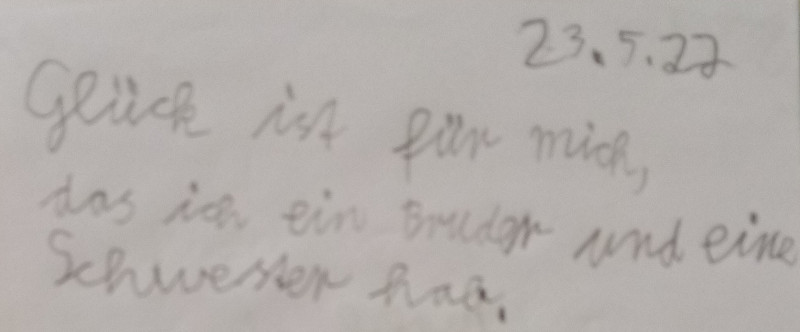 23.5.22
Glück ist für mich,
das ich ein Bruder und eine
Schwester hab.